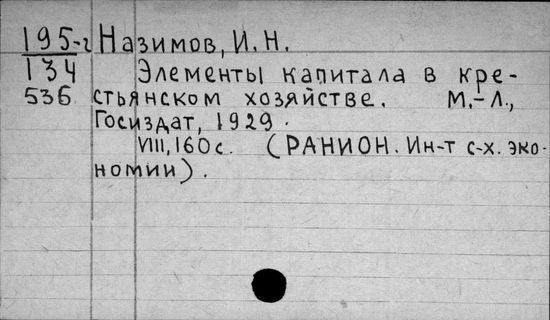 195-г Назимов, И. Н.
134 Элементы капитала в кре-
536 стьянском хозяйстве. М.-Л.,
Госиздат, 1929.
VIII, 160 с. (РАНИОН. Ин-т с-х. эко-
номии).